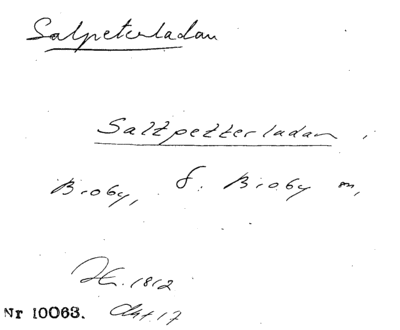 Salpeterladan
Saltpetterladan,
Broby, Ö. Broby sn,
Hr. 1812
Nr 10063. Akt 17